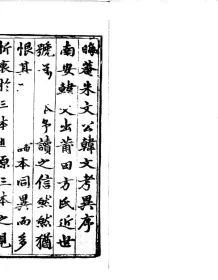 晦菴朱文公韓文考異序
南安韓文出莆田方氏近世
號為予讀之信然然猶
恨其本同異而多
折衷於三本也原三本之見